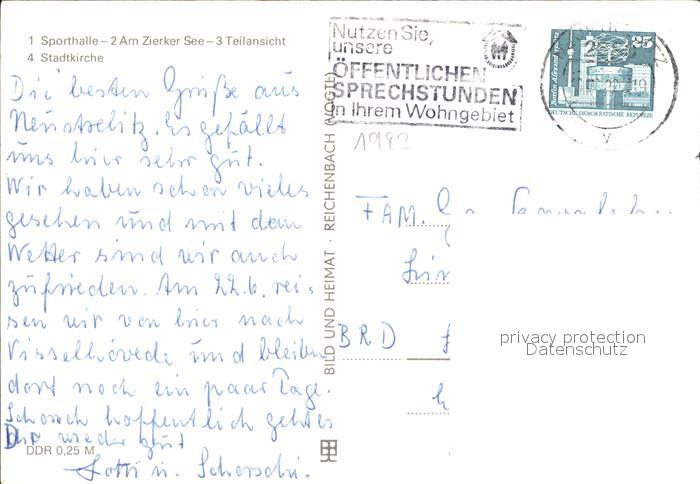 1 Sporthalle – 2 Am Zierker See – 3 Teilansicht
4 Stadtkirche
Die besten Grüße aus
Neustrelitz. Es gefällt
uns hier sehr gut.
Wir haben schon vieles
gesehen und mit dem
Wetter sind wir auch
zufrieden. Am 22.6. rei-
sen wir von hier nach
Visselhövede und bleiben
dort noch ein paar Tage.
Schorsch hoffentlich geht es
Dir wieder gut
DDR 0,25 M
Lotti u. Schorschi.
BILD UND HEIMAT · REICHENBACH (VOGTL)
Nutzen Sie,
unsere
ÖFFENTLICHEN
SPRECHSTUNDEN
in Ihrem Wohngebiet
1982
25
Berlin Alexanderplatz
DEUTSCHE DEMOKRATISCHE REPUBLIK
FAM.
BRD
privacy protection
Datenschutz